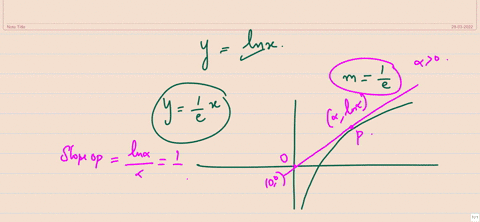 Note Title
29-03-2022
y = lnx.
m = 1/e
α>0.
y = 1/e x
(α, lnα)
P.
Slope OP = lnα/α = 1/
O
(0,0)
1/1